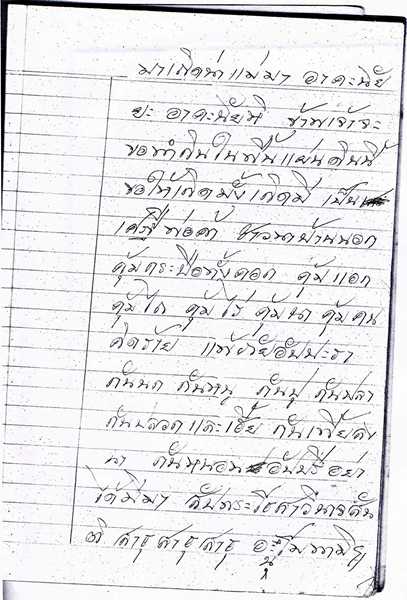 มาเกิดน่าแม่มา อาคะนัย
ยะ อาคะนัยนี ข้าพเจ้าจะ
ขอทำกินในพื้นแผ่นดินนี้
ขอให้เกิดมั่งเกิดมี เป็น
เศรฐีพ่อค้า ชาวนาบ้านนอก
คุ้มกระบือทั้งคอก คุ้มแอก
คุ้มไถ คุ้มไร่ คุ้มนา คุ้มคน
คิดร้าย แพ้ภัยอัปปะรา
กันนก กันหนู กันปู กันปลา
กันปลวกและเชี้ย กันเพี้ย
นา กันหนอน อย่า
ได้มีมา สัปกระโชควินาจสัน
ติ สาธุ สาธุ สาธุ อะโมทามิ
นุ